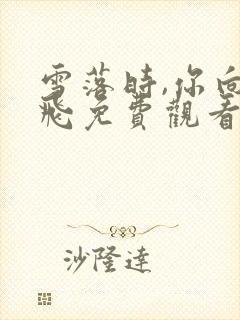 雪落時,你向
飛免費觀看
沙隆達